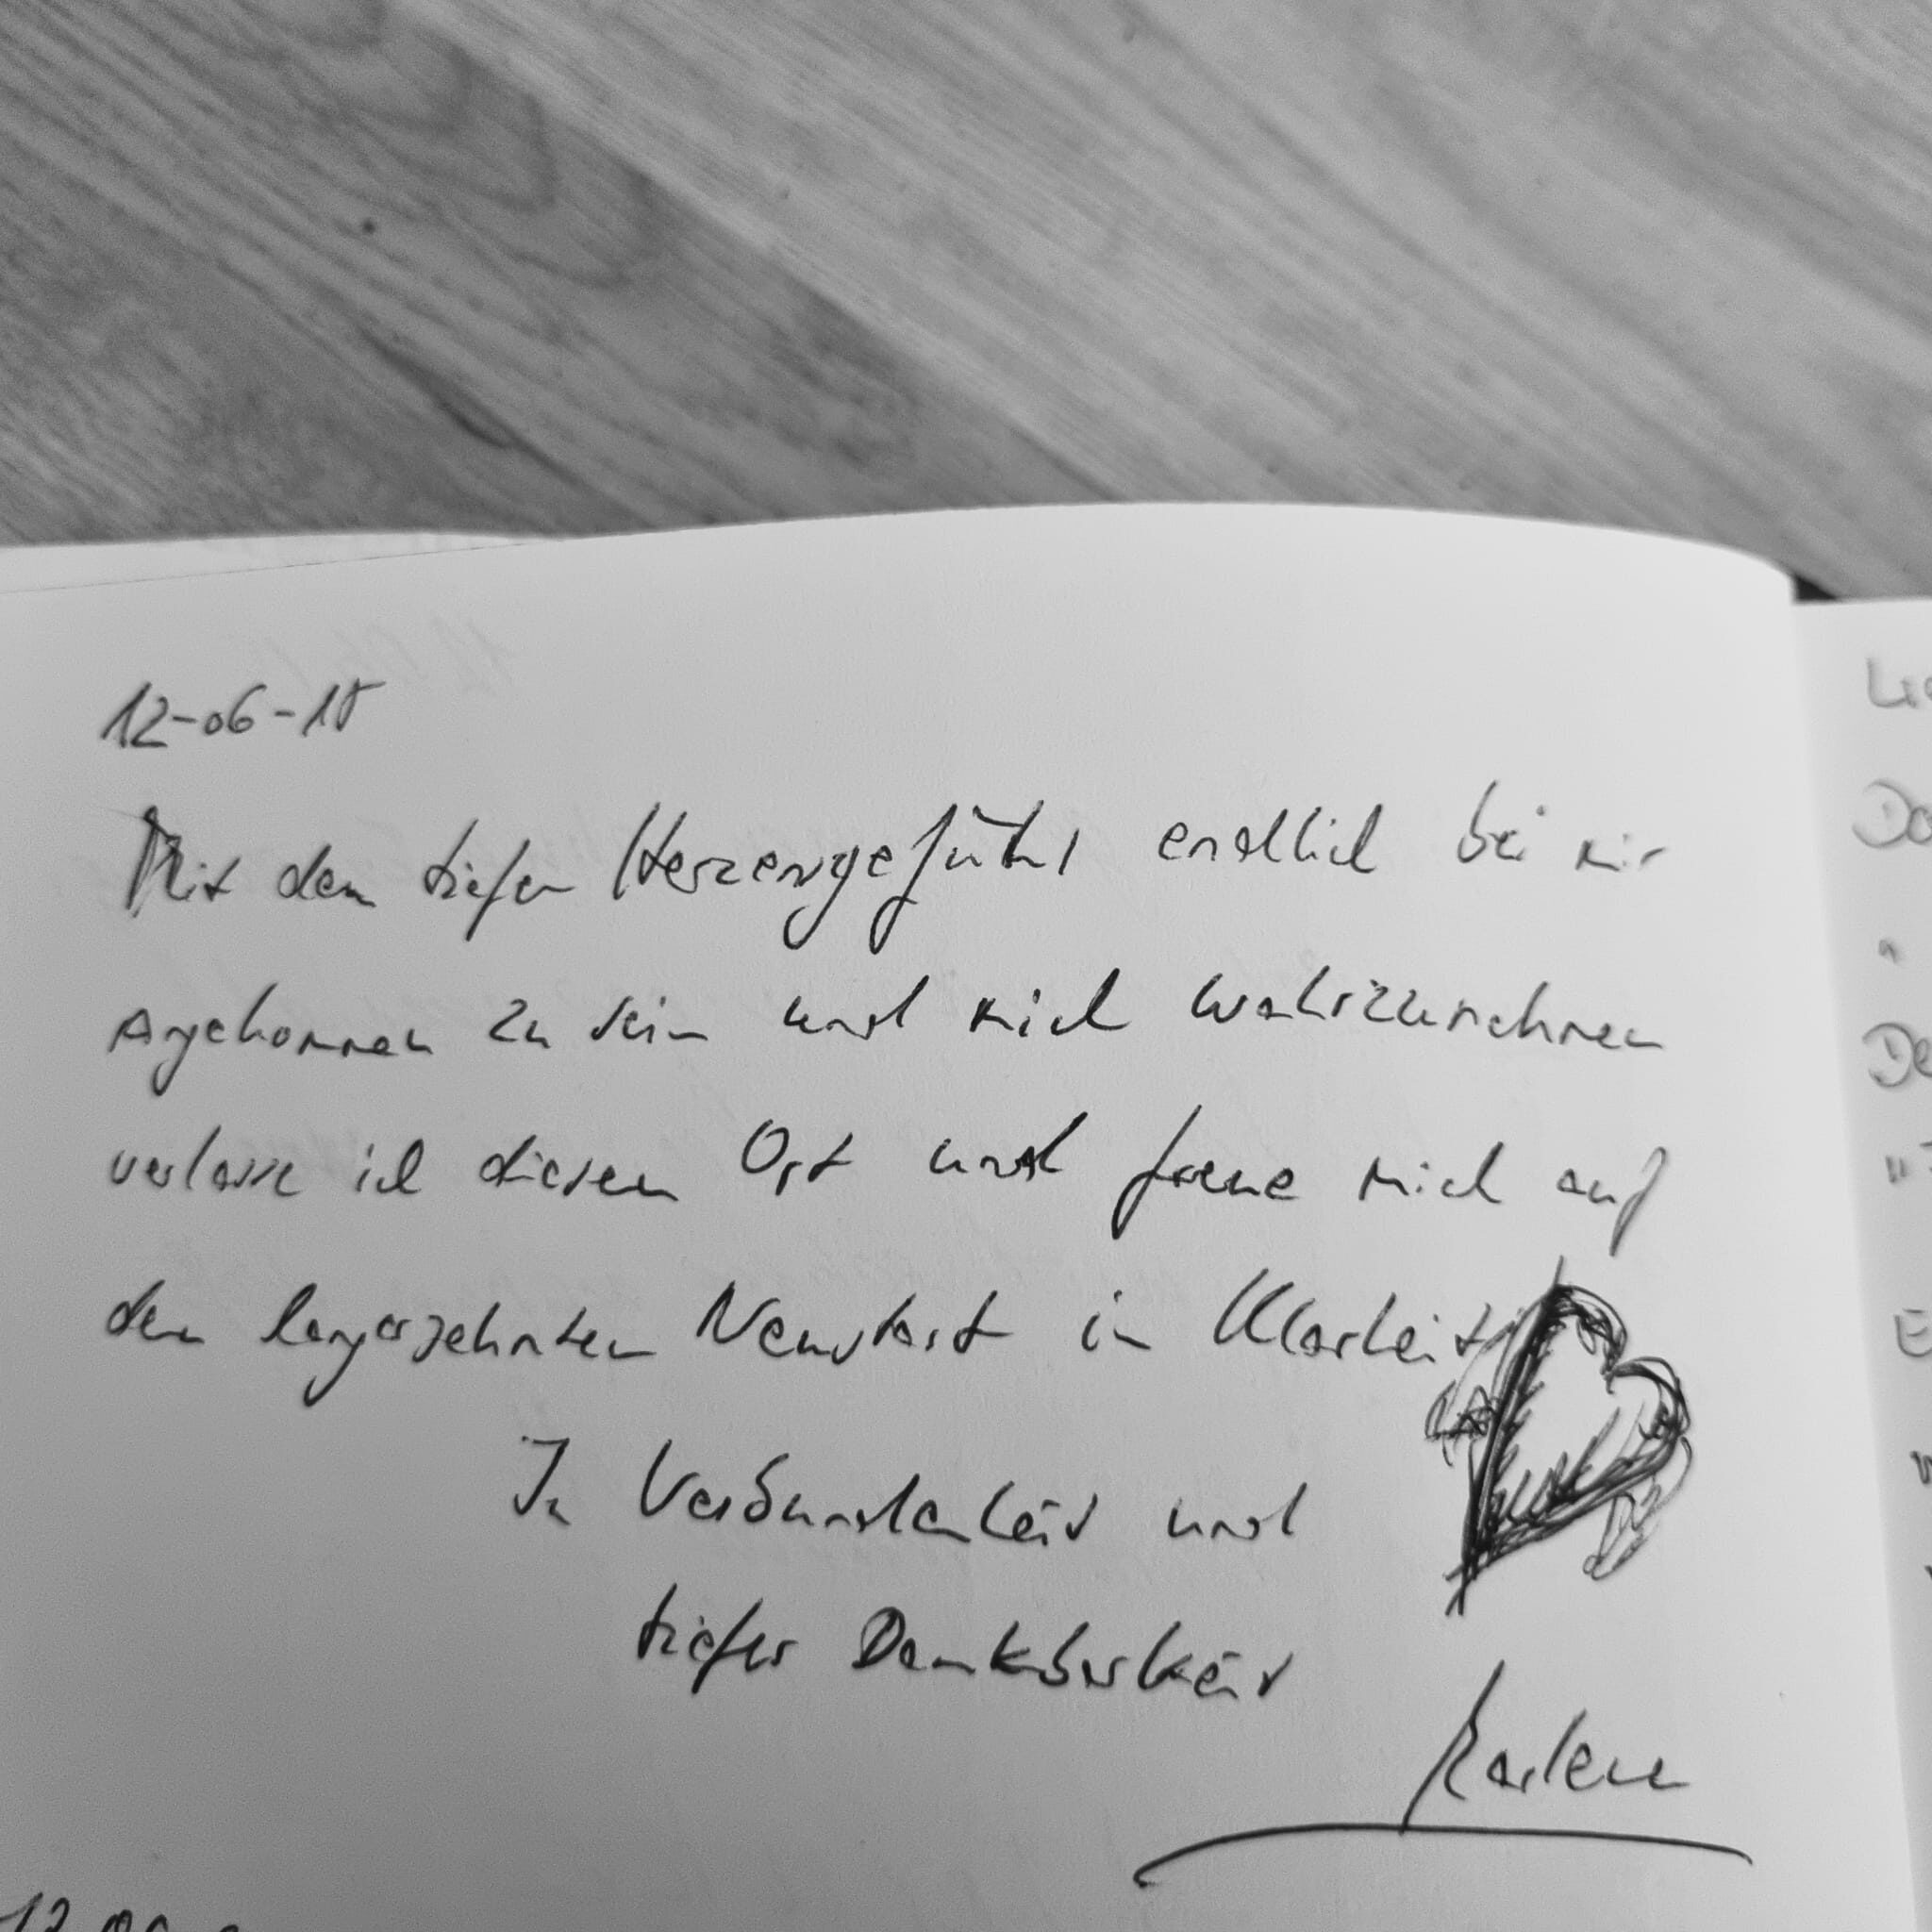 12-06-18
Mit dem tiefen Herzensgefühl endlich bei mir
angekommen zu sein und mich wahrzunehmen
verlasse ich diesen Ort und freue mich auf
den langersehnten Neustart in Klarheit
In Verbundenheit und
tiefer Dankbarkeit
Marlene
Do
De
E